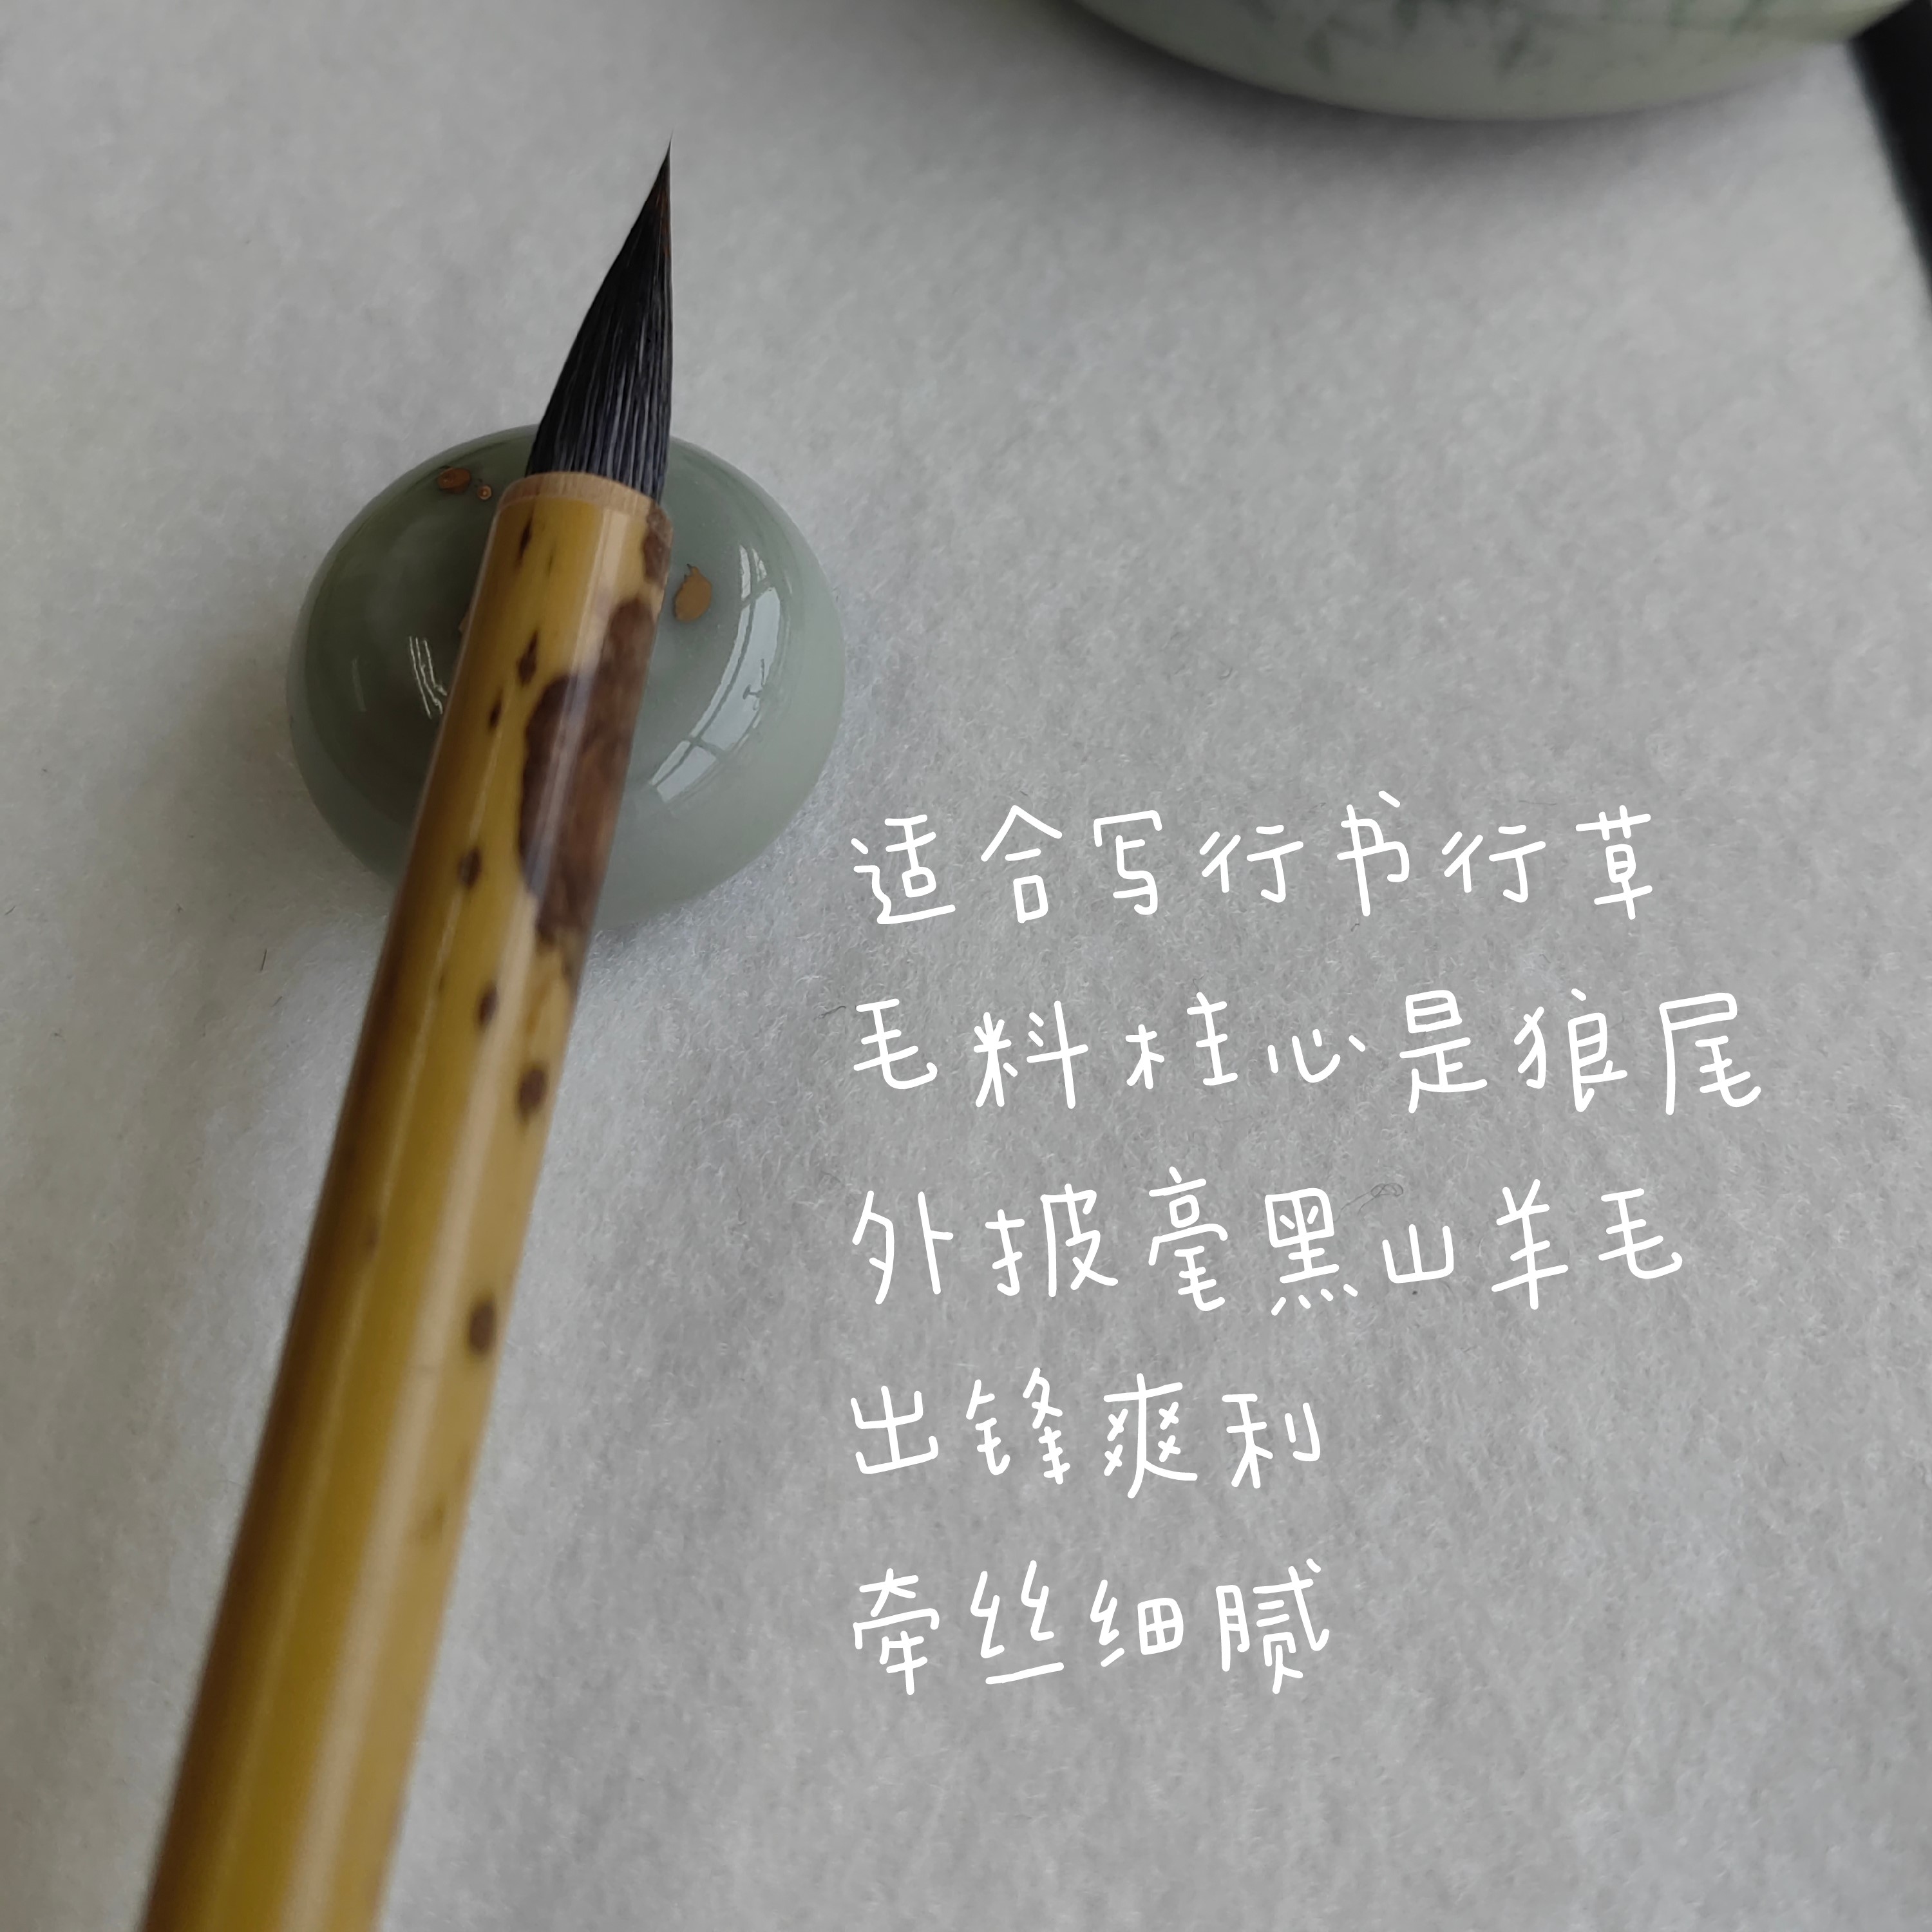 适合写行书行草
毛料柱心是狼尾
外披毫黑山羊毛
出锋爽利
牵丝细腻